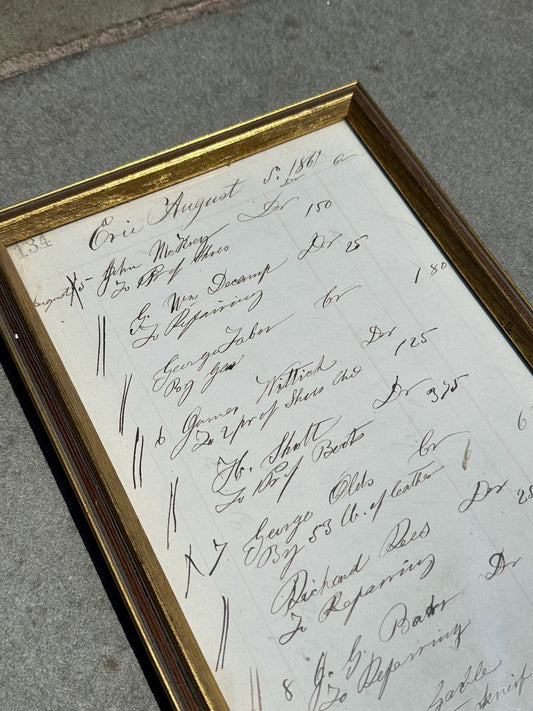 134
Erie August 5. 1861
Dr Cr
August 5 John McKrey Dr 150
To 1 Pr of Shoes
G. Wm Decamp Dr 25
To Repairing
George Tabor Cr 1 80
By Gas
6 James Wittich Dr 125
To 1 pr of Shoes
H. Shott Dr 375
To 1 Pr of Boots
7 George Olds Cr 6
By 53 lb. of leather
Richard Rees Dr 25
To Repairing
8 J. G. Dr
To Repairing